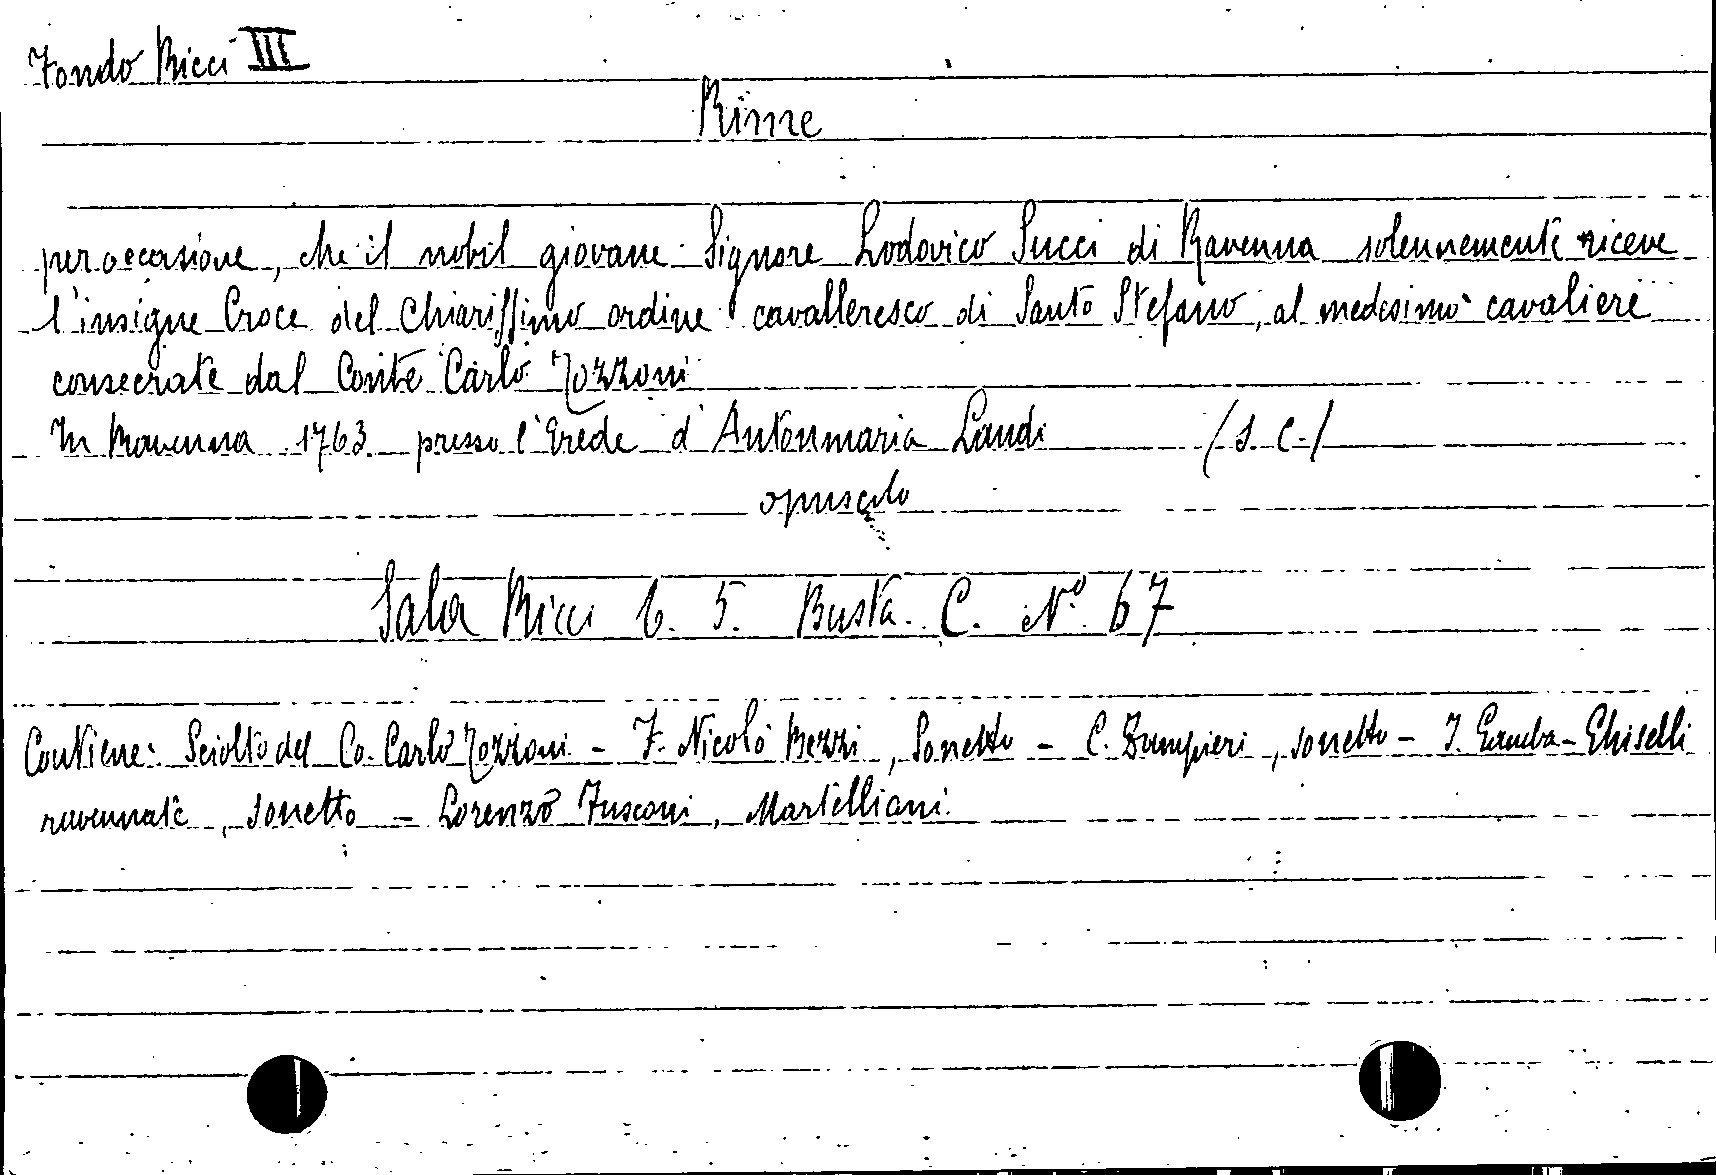 Fondo Ricci III
Rime
per occasione, che il nobil giovane Signore Lodovico Succi di Ravenna solennemente riceve
l'insigne Croce del Chiarissimo ordine cavalleresco di Santo Stefano, al medesimo cavaliere
consecrate dal Conte Carlo Tozzoni
In Ravenna 1763 presso l'Erede d'Antonmaria Landi (S. C.)
opuscolo
Sala Ricci 6. 5. Busta C. N.º 67
Contiene: Sciolto del Co. Carlo Tozzoni - F. Nicolò Bezzi, Sonetto - C. Zampieri, sonetto - I. Gamba-Ghiselli
ravennate, sonetto - Lorenzo Fusconi, Martelliani.